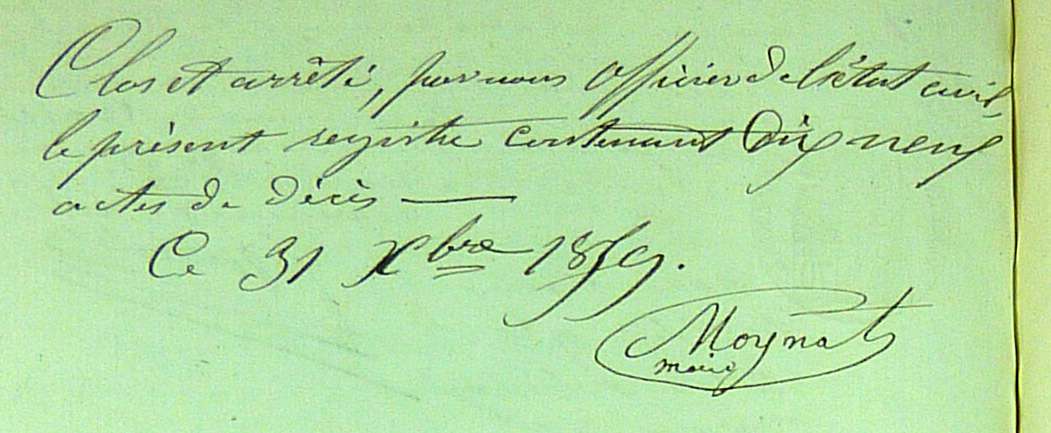 Clos et arrêté, par nous Officier de l'état civil,
le présent registre contenant Dix neuf
actes de décès —
Ce 31 Xbre 1859.
Moynat
maire